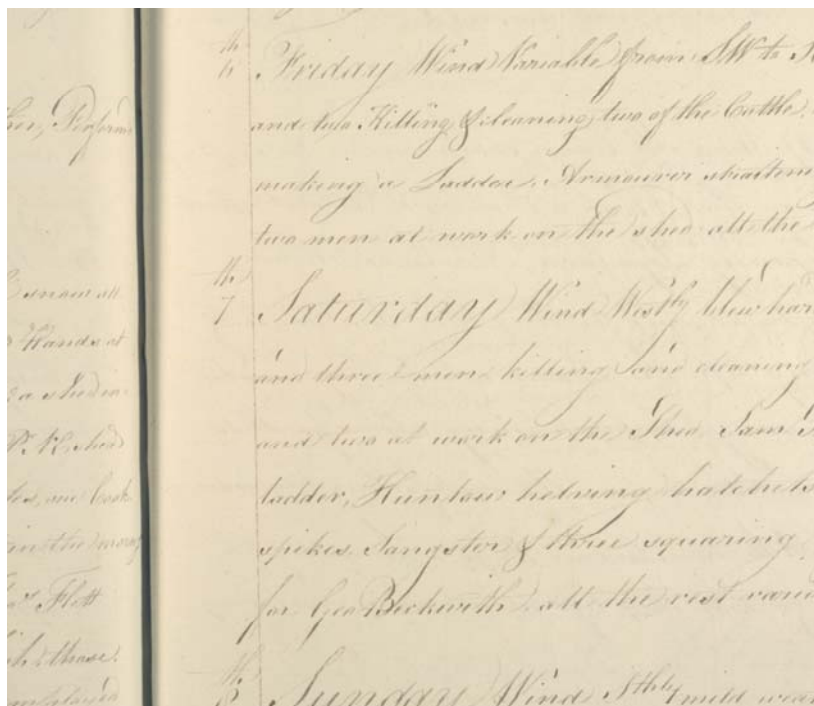 ther, Perform
snow all
Hands at
a shed in
shed
one Cook
in the morng
Flett
those
employed
6th Friday Wind Variable from SW to
and two Killing & cleaning two of the Cattle.
making a Ladder. Armourer
two men at work on the shed all the
7th Saturday Wind Westly blew har
and three men killing and cleaning
and two at work on the Shed. Saml
ladder, helving hatchets
spikes. Sangster & three squaring
for Geo Beckwith all the rest
8th Sunday Wind Nthly mild wea